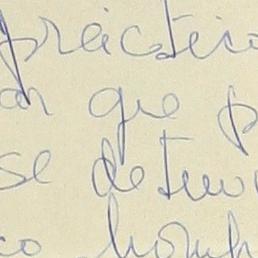 práctico
que p
se detuvo
co homb